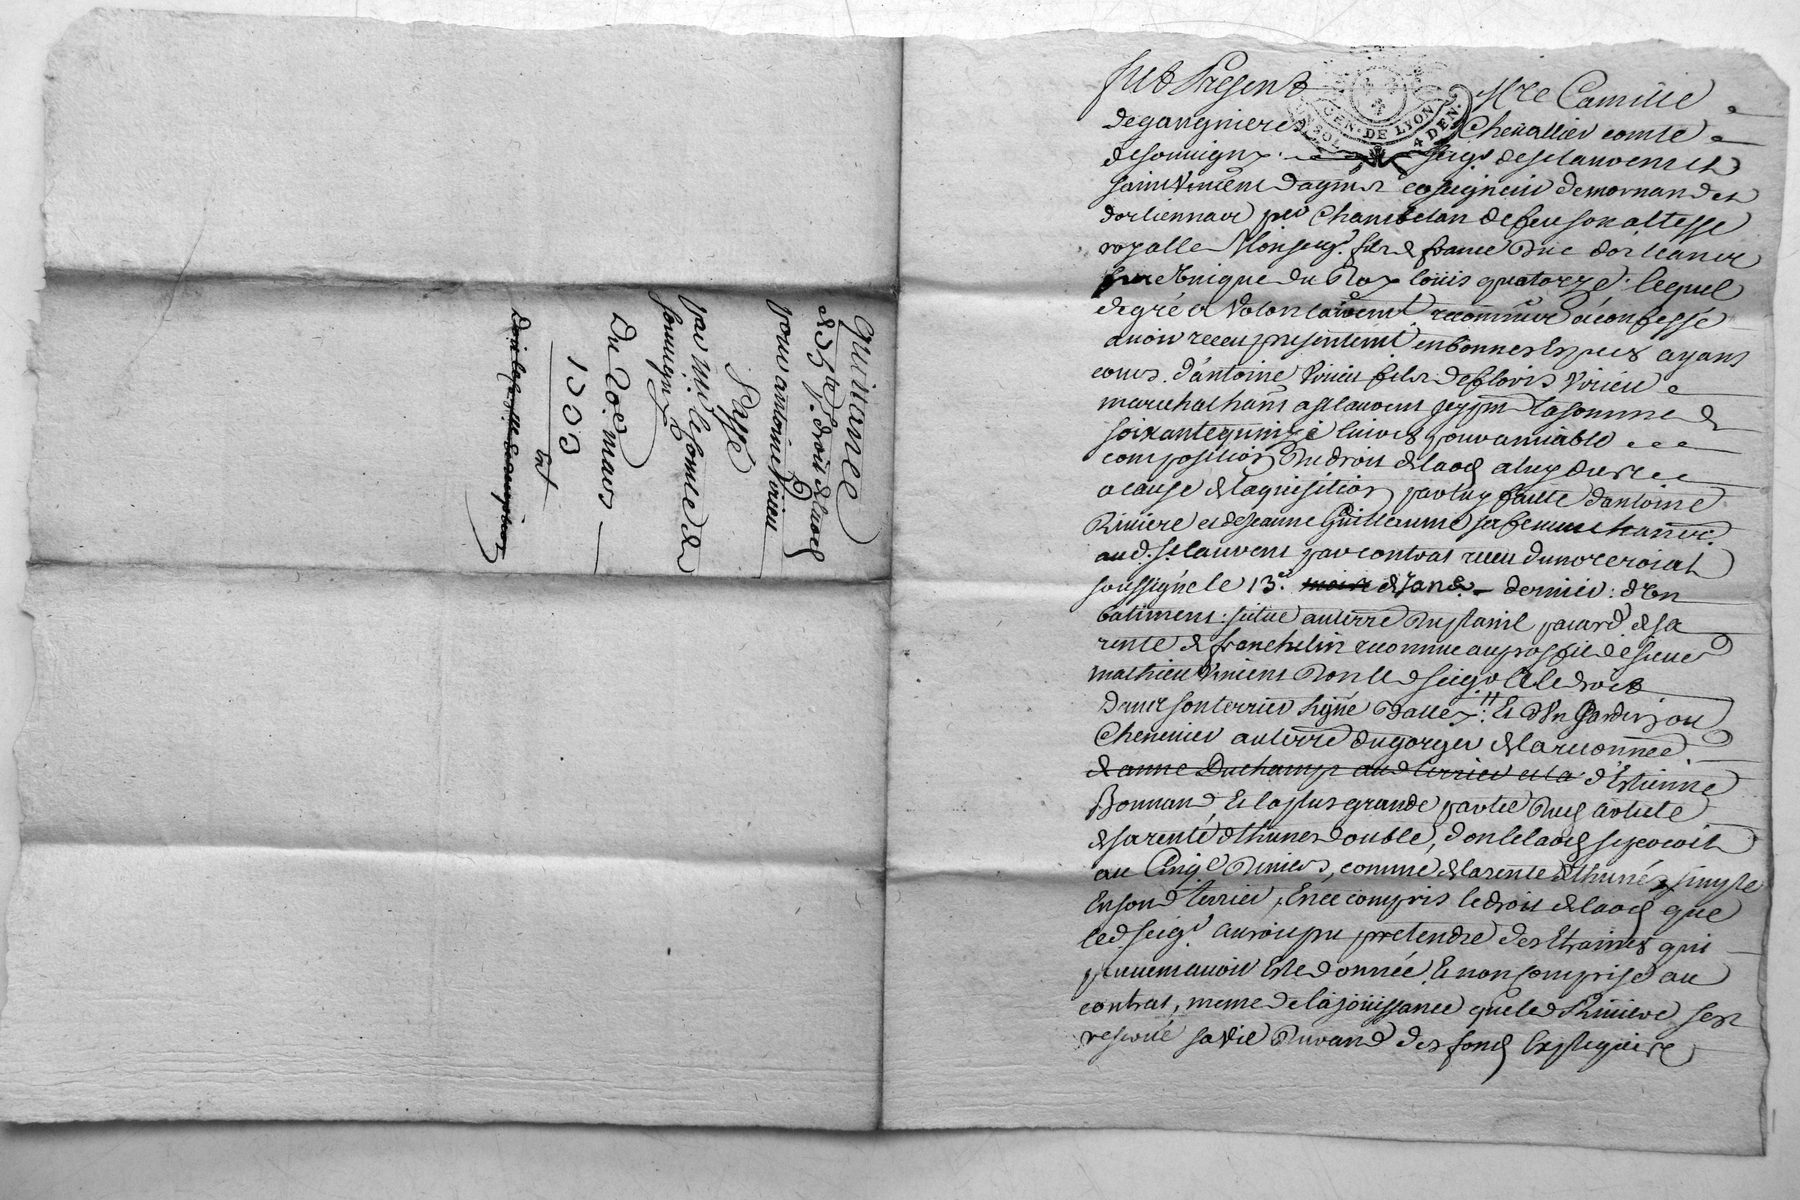 Quittance
et dep.te du droit de laods
pour antoine Virieu
Passé
par m.re le Comte de
Souvigny
Du 20e mars
1703
GEN. DE LYON
4 DEN.
fut Present Mre Camille
degangnieres Chevallier comte
desouvigny seigr. destlaurens et
saint Vincent dagny coseigneur demornand et
dorliennas pr. Chambelan defeu son altesse
royalle Monseigr. fils de france Duc dorleans
frere Unique du Roy loüis quatorze: lequel
degré et Volontairemt. reconnu et confessé
avoir receu presentemt en bonnes especes ayans
cours d'antoine Virieu fils de floris Virieu
marechal hānt a stlaurens la somme de
soixante quinze livres pour amiable
composition du droit de laods a luy deu
a cause de laquisition par luy faitte d'antoine
Riviere et de Jeanne Guillaume sa femme
aud. st laurens par contrat receu du nore roial
soussigné le 13e. de Janv. dernier: d'Un
batiment: situé au terre
rente de franchelin reconnue au proffit de sieur
mathieu dont led seigr. A le droit
dans son terrier signé Et d'Un Jardin ou
Chenevier au terre de la reconnce.
de anne Duchamp aud terrier et la d'Estienne
Bonnand, Et la plus grande partie dud article
de sa rente de thunes double, dont le laods se percoit
au Cinqe. denier, comme de la rente de thunes simple
En son d. terrier, En ce compris le droit de laods que
led. seigr. auroit pu pretendre des Etraines qui
peuvent avoir Esté donnée Et non comprise au
contrat, meme de la jouissance que led Riviere sest
reservé sa vie Durand des fonds